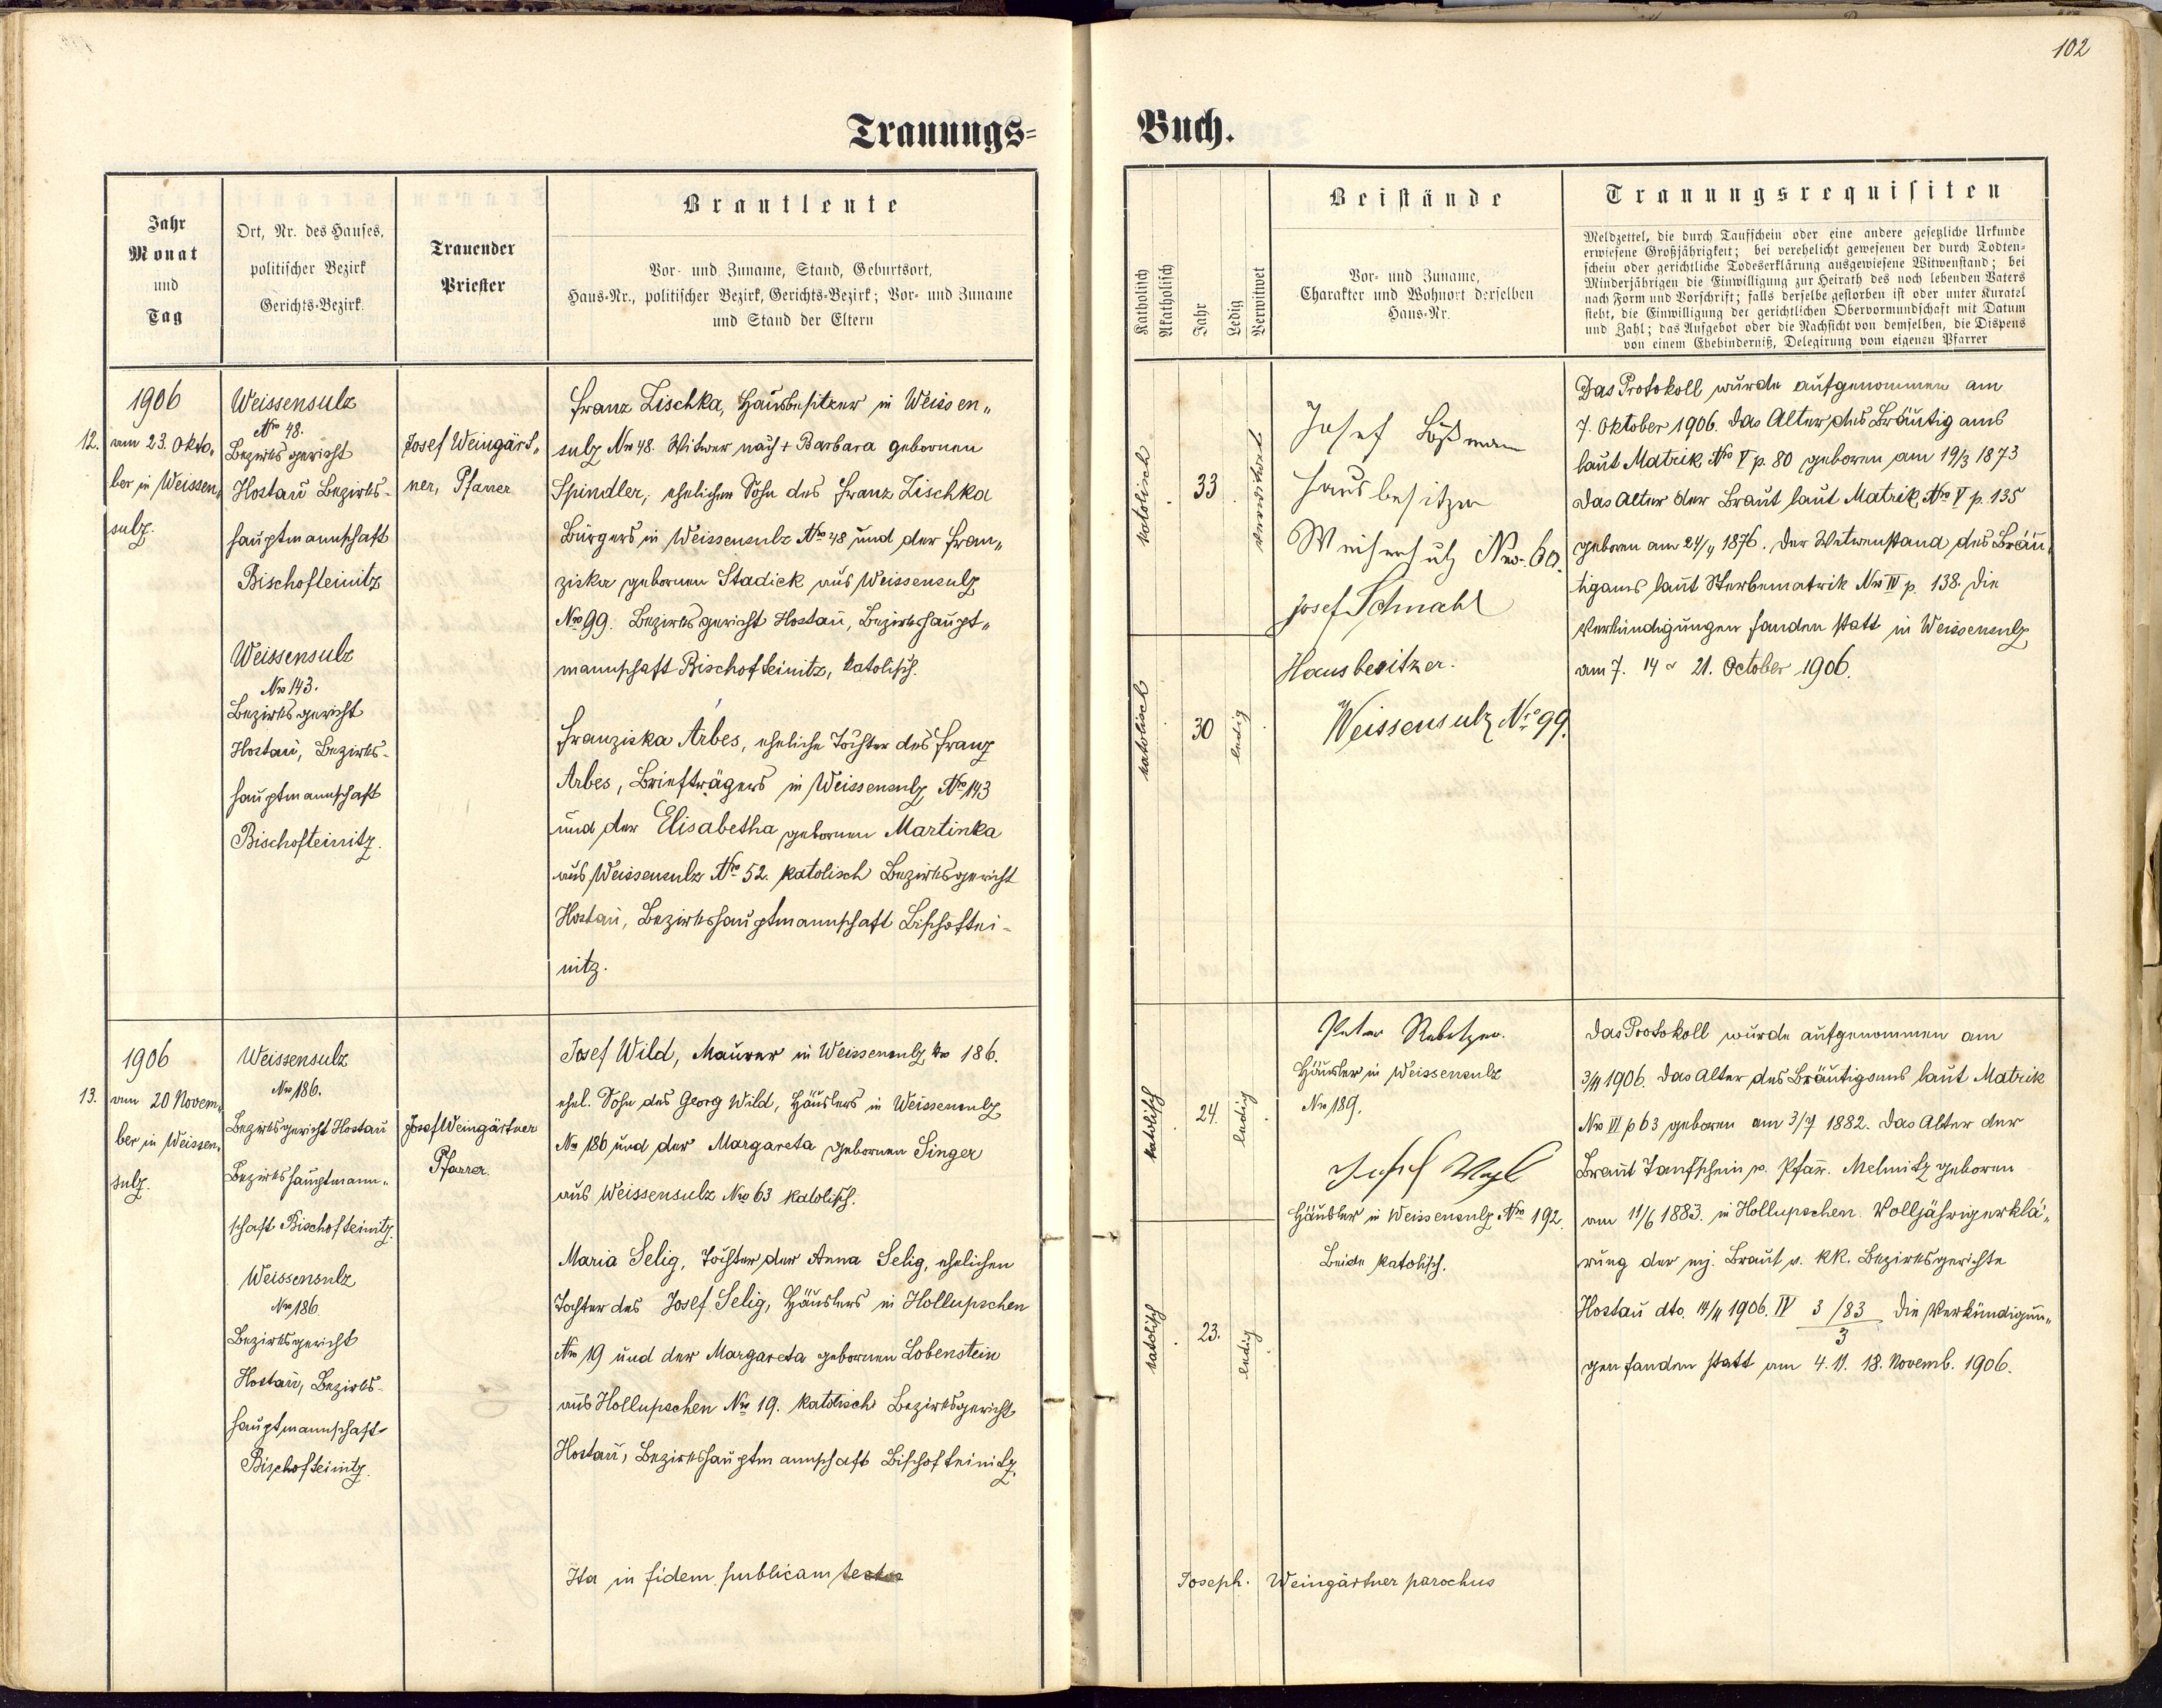 102
Trauungs-
Buch.
Jahr
Monat
und
Tag
Ort, Nr. des Hauses,
politischer Bezirk
Gerichts-Bezirk.
Trauender
Priester
Brautleute
Vor- und Zuname, Stand, Geburtsort,
Haus-Nr., politischer Bezirk, Gerichts-Bezirk; Vor- und Zuname
und Stand der Eltern
Katholisch
Akatholisch
Jahr
Ledig
Verwitwet
Beistände
Vor- und Zuname,
Charakter und Wohnort derselben
Haus-Nr.
Trauungsrequisiten
Meldzettel, die durch Taufschein oder eine andere gesetzliche Urkunde
erwiesene Großjährigkeit; bei verehelicht gewesenen der durch Todten-
schein oder gerichtliche Todeserklärung ausgewiesene Witwenstand; bei
Minderjährigen die Einwilligung zur Heirath des noch lebenden Vaters
nach Form und Vorschrift; falls derselbe gestorben ist oder unter Kuratel
steht, die Einwilligung der gerichtlichen Obervormundschaft mit Datum
und Zahl; das Aufgebot oder die Nachsicht von demselben, die Dispens
von einem Ehehinderniß, Delegirung vom eigenen Pfarrer
12.
1906
am 23. Okto„
ber in Weissen„
sulz.
Weissensulz
Nro 48.
Bezirksgericht
Hostau Bezirks-
hauptmannschaft
Bischofteinitz
Weissensulz
Nro 143.
Bezirksgericht
Hostau, Bezirks-
hauptmannschaft
Bischofteinitz.
Josef Weingärt„
ner, Pfarrer
Franz Zischka, Hausbesitzer in Weissen„
sulz Nro 48. Witwer nach + Barbara gebornen
Spindler, ehelicher Sohn des Franz Zischka
Bürgers in Weissensulz Nro 48 und der Fran„
ziska gebornen Stadick aus Weissensulz
Nro 99. Bezirksgericht Hostau, Bezirkshaupt„
mannschaft Bischofteinitz, katolisch.
Franziska Arbes, eheliche Tochter des Franz
Arbes, Briefträgers in Weissensulz Nro 143
und der Elisabetha gebornen Martinka
aus Weissensulz Nro 52. katolisch Bezirksgericht
Hostau, Bezirkshauptmannschaft Bischoftei-
nitz.
katolisch
33
verwitwet
katolisch
30
ledig
Josef
Hausbesitzer
Weißensulz Nro. 60.
Josef Schmahl
Hausbesitzer.
Weissensulz Nro 99.
Das Protokoll wurde aufgenommen am
7. Oktober 1906. Das Alter des Bräutigams
laut Matrik Nro V p. 80 geboren am 19/3 1873
Das Alter der Braut laut Matrik Nro V p. 135
geboren am 24/4 1876. Der Witwenstand des Bräu„
tigams laut Sterbematrik Nro IV p. 138. Die
Verkündigungen fanden statt in Weissensulz
am 7. 14 & 21. October 1906.
13.
1906
am 20 Novem„
ber in Weissen„
sulz.
Weissensulz
Nro 186.
Bezirksgericht Hostau
Bezirkshauptmann„
schaft Bischofteinitz.
Weissensulz
Nro 186.
Bezirksgericht
Hostau, Bezirks-
hauptmannschaft
Bischofteinitz.
Josef Weingärtner
Pfarrer.
Josef Wild, Maurer in Weissensulz Nro 186.
ehel. Sohn des Georg Wild, Häuslers in Weissensulz
Nro 186 und der Margareta gebornen Singer
aus Weissensulz Nro 63 katolisch.
Maria Selig, Tochter der Anna Selig, ehelichen
Tochter des Josef Selig, Häuslers in Hollupschen
Nro 19 und der Margareta gebornen Lobenstein
aus Hollupschen Nro 19. katolisch Bezirksgericht
Hostau, Bezirkshauptmannschaft Bischofteinitz.
katolisch
24.
ledig
katolisch
23.
ledig
Peter
Häusler in Weissensulz
Nro 189.
Josef
Häusler in Weissensulz Nro 192.
Beide katolisch.
Das Protokoll wurde aufgenommen am
3/11 1906. Das Alter des Bräutigams laut Matrik
Nro VI p 63 geboren am 3/7 1882. Das Alter der
Braut Taufschein v. Pfarr. Melmitz geboren
am 11/6 1883. in Hollupschen. Volljährigerklä„
rung der mj. Braut v. KK. Bezirksgerichte
Hostau dto. 14/11 1906. IV 3/83
3
Die Verkündigun„
gen fanden statt am 4. 11. 18. Novemb. 1906.
Ita in fidem publicam
Joseph. Weingärtner parochus